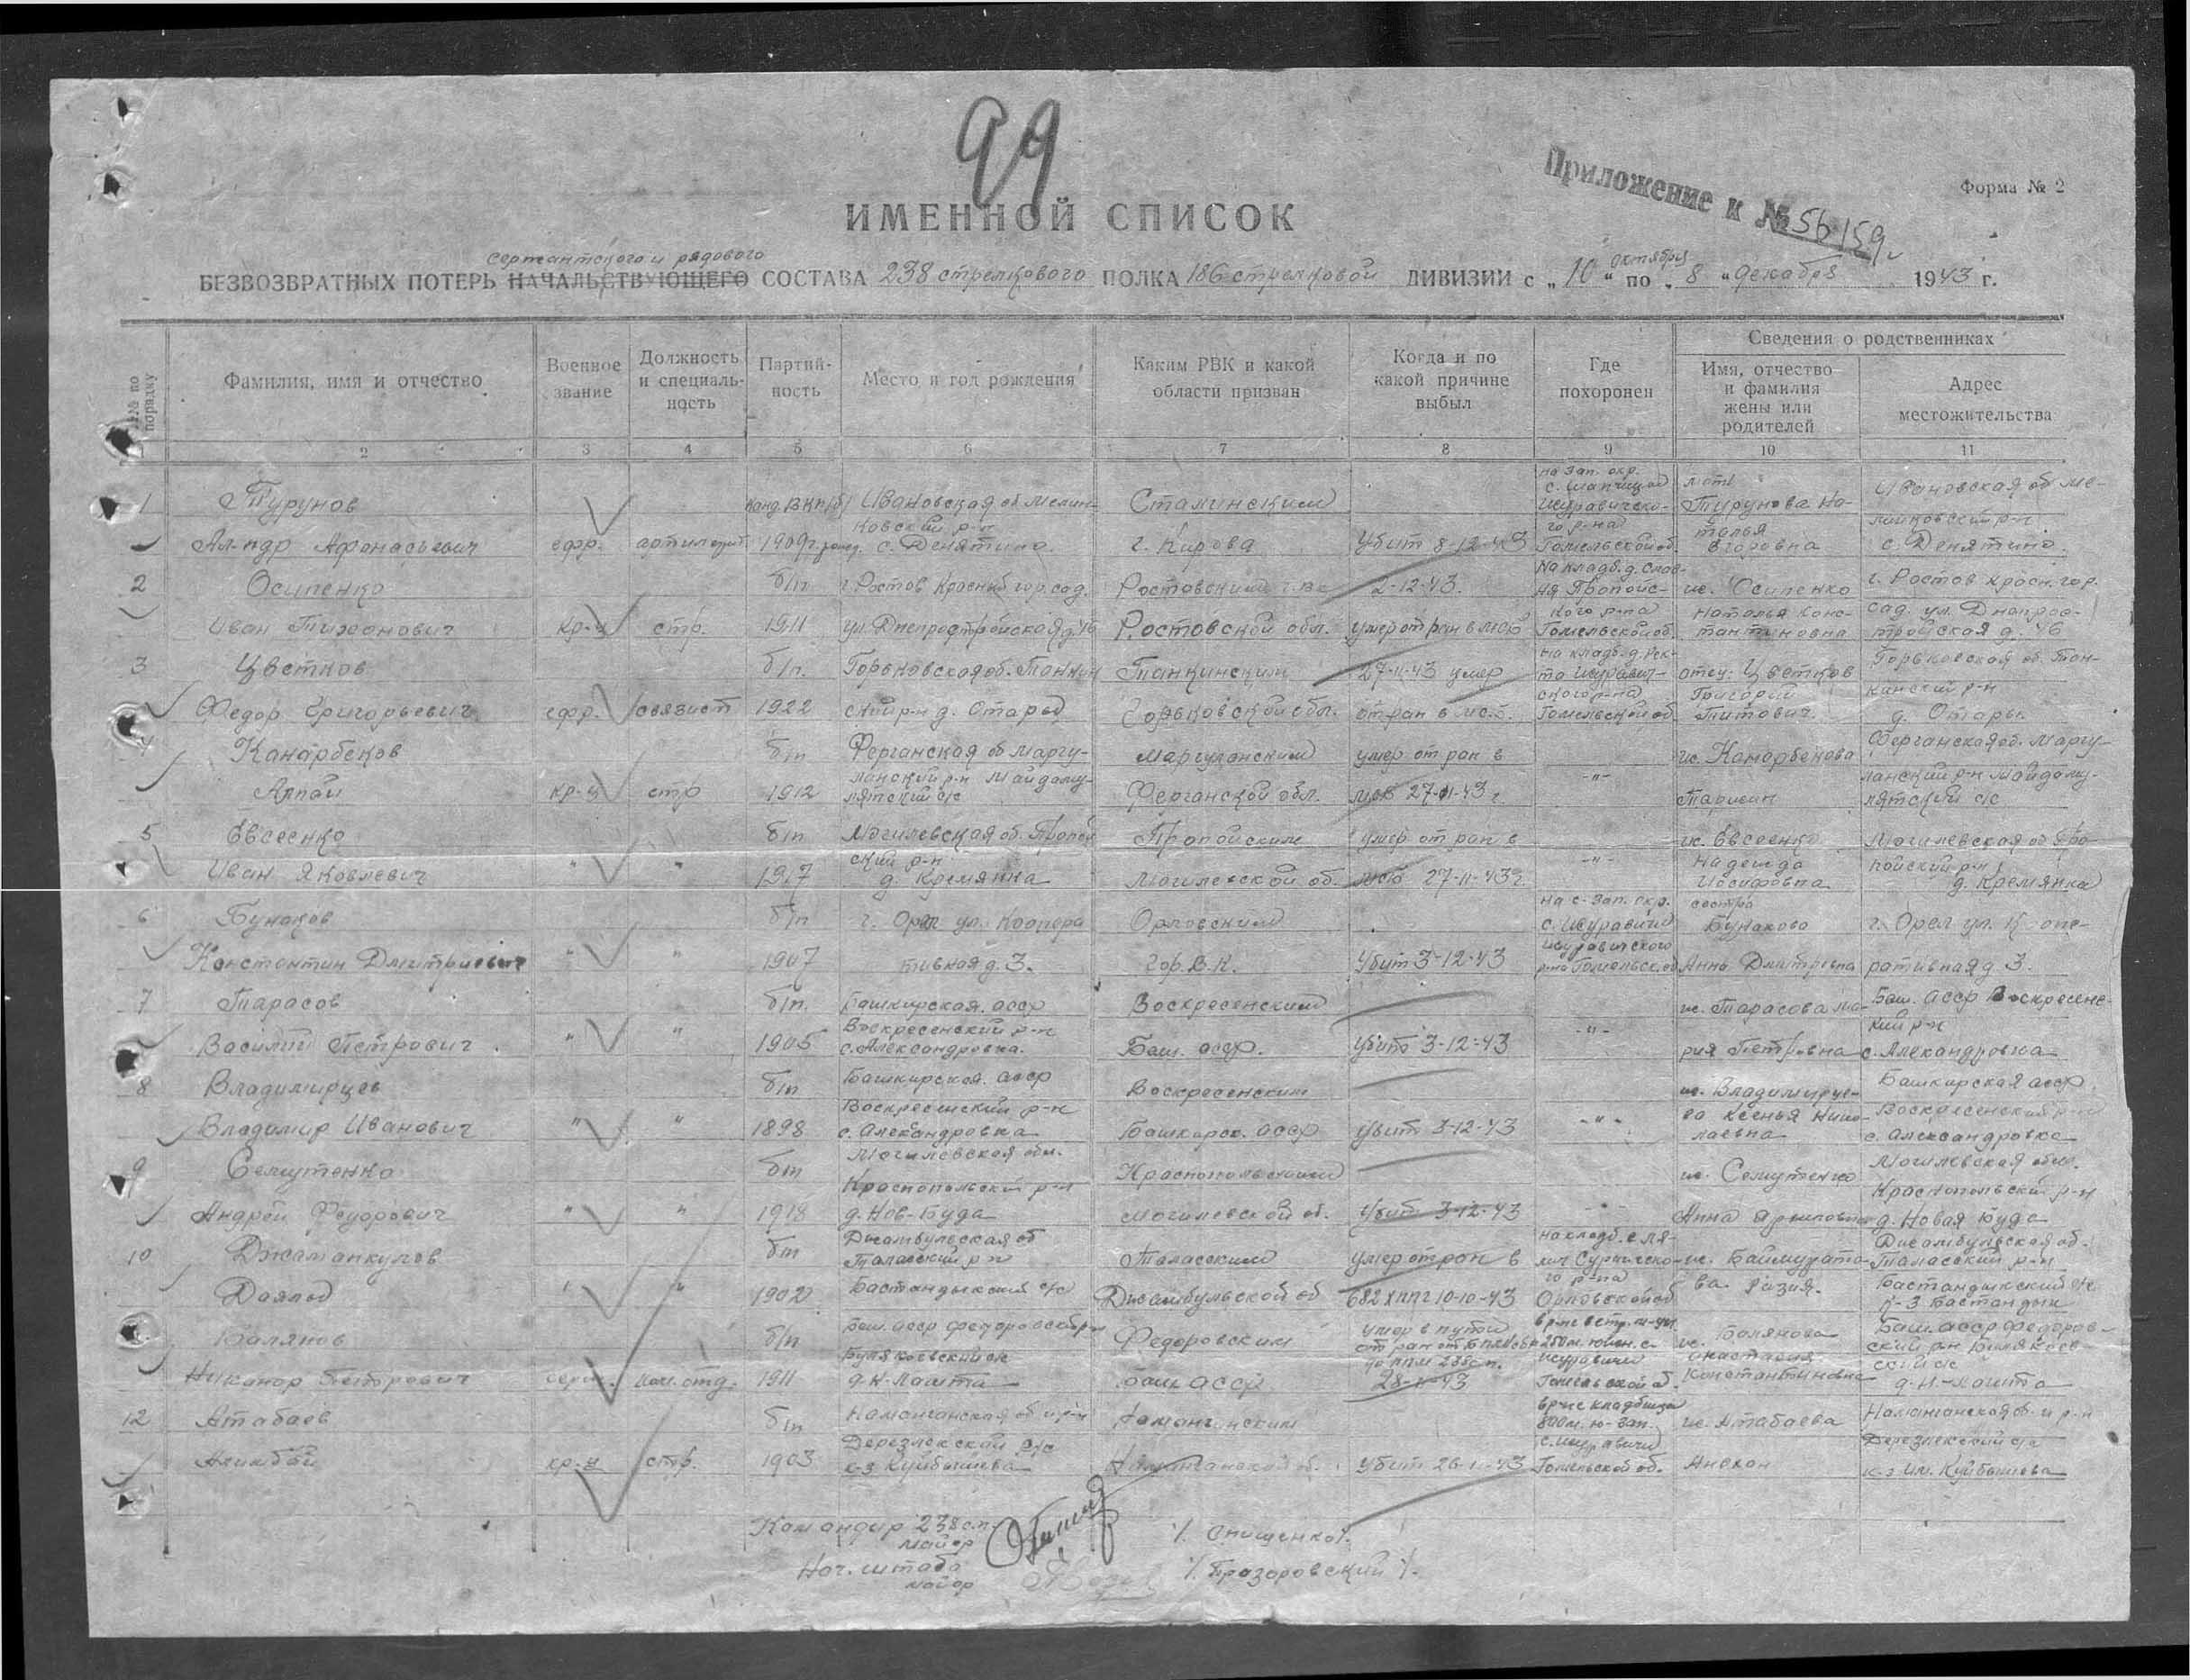 99
Приложение к № 56159с
Форма № 2
ИМЕННОЙ СПИСОК
сержантского и рядового
БЕЗВОЗВРАТНЫХ ПОТЕРЬ НАЧАЛЬСТВУЮЩЕГО СОСТАВА 238 стрелкового ПОЛКА 186 стрелковой ДИВИЗИИ с „10“ октября по „8“ декабря 1943 г.
№№ по порядку
Фамилия, имя и отчество
Военное звание
Должность и специальность
Партийность
Место и год рождения
Каким РВК и какой области призван
Когда и по какой причине выбыл
Где похоронен
Сведения о родственниках
Имя, отчество и фамилия жены или родителей
Адрес местожительства
2 3 4 5 6 7 8 9 10 11
1 Турунов Ал-ндр Афанасьевич ефр. артилерист канд. ВКП(б) 1909г. рожд. Ивановская об Мелинковский р-н с. Денятино Сталинским г. Кирова Убит 8-12-43 на зап. окр. Журавичского р-на Гомельской об. мать Турунова Наталья Егоровна Ивановская об Мелинковский р-н с. Денятино
2 Осипенко Иван Тихонович кр-ц стр. б/п 1911 г. Ростов Красный гор. сад. ул. Днепростройская д. 46 Ростовским г. вк Ростовской обл. 2-12-43. умер от ран в мсб На кладб. д. Пропойского р-на Гомельской об. ж. Осипенко Наталья Константиновна г. Ростов Красн. гор. сад. ул. Днепростройская д. 46
3 Цветков Федор Григорьевич ефр. связист б/п. 1922 Горьковская об. Тонкинский р-н д. Отары Тонкинским Горьковской обл. 27-11-43 умер от ран в мсб. на кладб. д. Журавичского р-на Гомельской об отец: Цветков Григорий Титович Горьковская об. Тонкинский р-н д. Отары
4 Канарбеков Арпай кр-ц стр б/п 1912 Ферганская об Маргуланский р-н Майдамулятский с/с Маргуланским Ферганской обл. умер от ран в мсб 27-11-43 г. -"- ж. Канарбекова Ферганская об. Маргуланский р-н Майдамулятский с/с
5 Евсеенко Иван Яковлевич " " б/п 1917 Могилевская об. Пропойский р-н д. Кремянка Пропойским Могилевской об. умер от ран в мсб 27-11-43г. -"- ж. Евсеенко Надежда Иосифовна Могилевская об Пропойский р-н д. Кремянка
6 Бунаков Константин Дмитриевич " " б/п 1907 г. Орел ул. Кооперативная д. 3. Орловским Гор. В.К. Убит 3-12-43 на с-зап. окр. с. Журавичи Журавичского р-на Гомельск. об сестра Бунакова Анна Дмитровна г. Орел ул. Кооперативная д. 3.
7 Тарасов Василий Петрович " " б/п. 1905 Башкирская. асср Воскресенский р-н с. Александровка. Воскресенским Баш. асср. Убит 3-12-43 -"- ж. Тарасова Мария Петровна Баш. асср Воскресенский р-н с. Александровка
8 Владимирцев Владимир Иванович " " б/п 1898 Башкирская. асср Воскресенский р-н с. Александровка Воскресенским Башкирск. асср Убит 3-12-43 -"- ж. Владимирцева Ксенья Николаевна Башкирская асср. Воскресенский р-н с. Александровка
9 Семутенко Андрей Федорович " " б/п 1918 Могилевская обл. Краснопольский р-н д. Нов-Буда Краснопольским Могилевской об. Убит 3-12-43 -"- ж. Семутенко Анна Могилевская обл. Краснопольский р-н д. Новая Буда
10 Джаманкулов Даялд " " б/п 1902 Джамбульская об Таласский р-н Бастандыкский с/с Таласским Джамбульской об умер от ран в 682 ХППГ 10-10-43 на кладб. р-на Орловской об ж. Баймуратова Разия. Джамбульская об. Таласский р-н Бастандыкский с/с к-з Бастандык
Балянов Никанор Петрович серж. ком. отд. б/п 1911 Баш. асср Федоровский р-н Булякаевский с/с д. Н-Яошта Федоровским Баш АССР умер в пути от ран до ППМ 238 с.п. 28-11-43 250м. южн. с. Журавичи Гомельской об. ж. Балянова Анастасия Константиновна Баш. асср Федоровский р-н Булякаевский с/с
12 Атабаев Акимбай кр-ц стр. б/п 1903 Наманганская об и р-н Дерезлекский с/с к-з Куйбышева Наманганским Наманганской об. Убит 26-11-43 кладбища 800м. ю-зап. с. Журавичи Гомельской об. ж. Атабаева Анахон Наманганская об. и р-н Дерезлекский с/с к-з им. Куйбышева
Командир 238 с.п.
майор
/. Онищенко /.
Нач. штаба
майор
/. Прозоровский /.